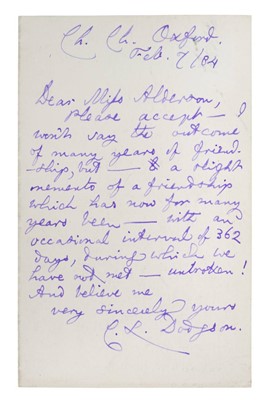 Ch. Ch. Oxford.
Feb. 7/84
Dear Miss Alderson,
Please accept — I
won't say the outcome
of many years of friend-
-ship, but — a slight
memento of a friendship
which has now for many
years been — with an
occasional interval of 362
days, during which we
have not met — unbroken!
And believe me
very sincerely yours
C. L. Dodgson.